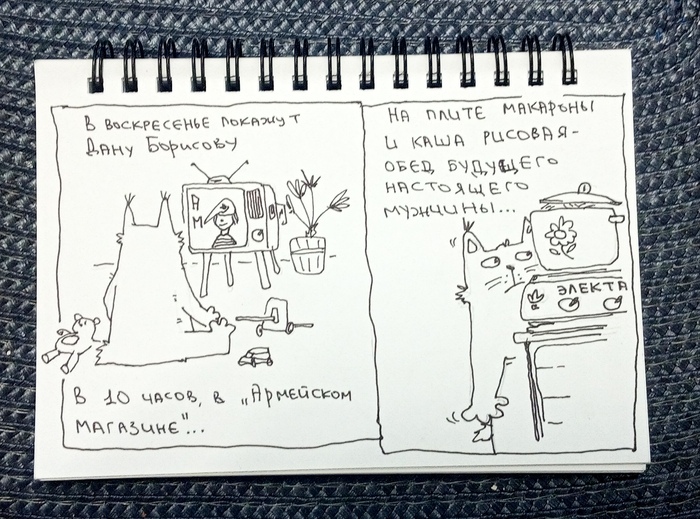 В ВОСКРЕСЕНЬЕ ПОКАЖУТ
ДАНУ БОРИСОВУ
А
М
В 10 ЧАСОВ, В „АРМЕЙСКОМ
МАГАЗИНЕ"...
НА ПЛИТЕ МАКАРОНЫ
И КАША РИСОВАЯ-
ОБЕД БУДУЩЕГО
НАСТОЯЩЕГО
МУЖЧИНЫ...
ЭЛЕКТА